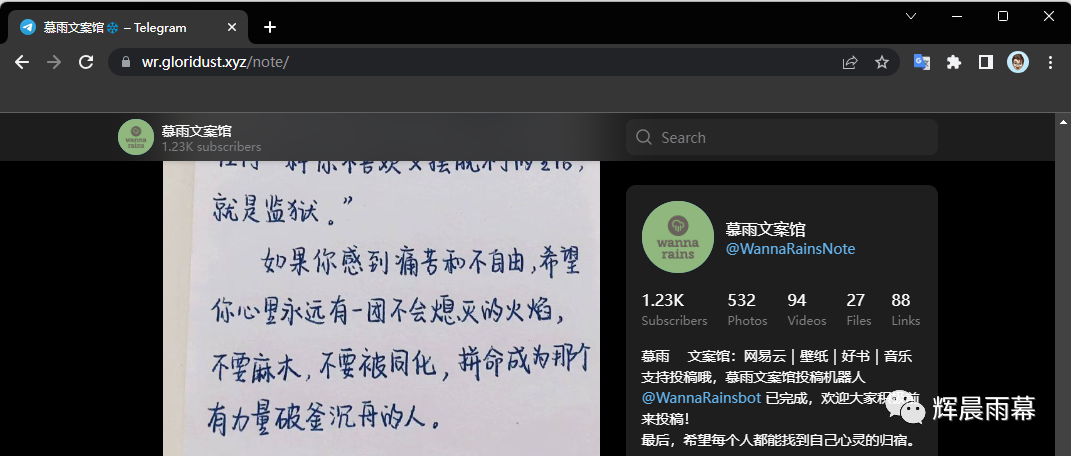 慕雨文案馆❄️ – Telegram
wr.gloridust.xyz/note/
慕雨文案馆
1.23K subscribers
Search
就是监狱。”
如果你感到痛苦和不自由,希望
你心里永远有一团不会熄灭的火焰,
不要麻木,不要被同化,拼命成为那个
有力量破釜沉舟的人。
wanna
rains
慕雨文案馆
@WannaRainsNote
1.23K 532 94 27 88
Subscribers Photos Videos Files Links
慕雨 文案馆：网易云 | 壁纸 | 好书 | 音乐
支持投稿哦，慕雨文案馆投稿机器人
@WannaRainsbot 已完成，欢迎大家积极前
来投稿！
最后，希望每个人都能找到自己心灵的归宿。
辉晨雨幕